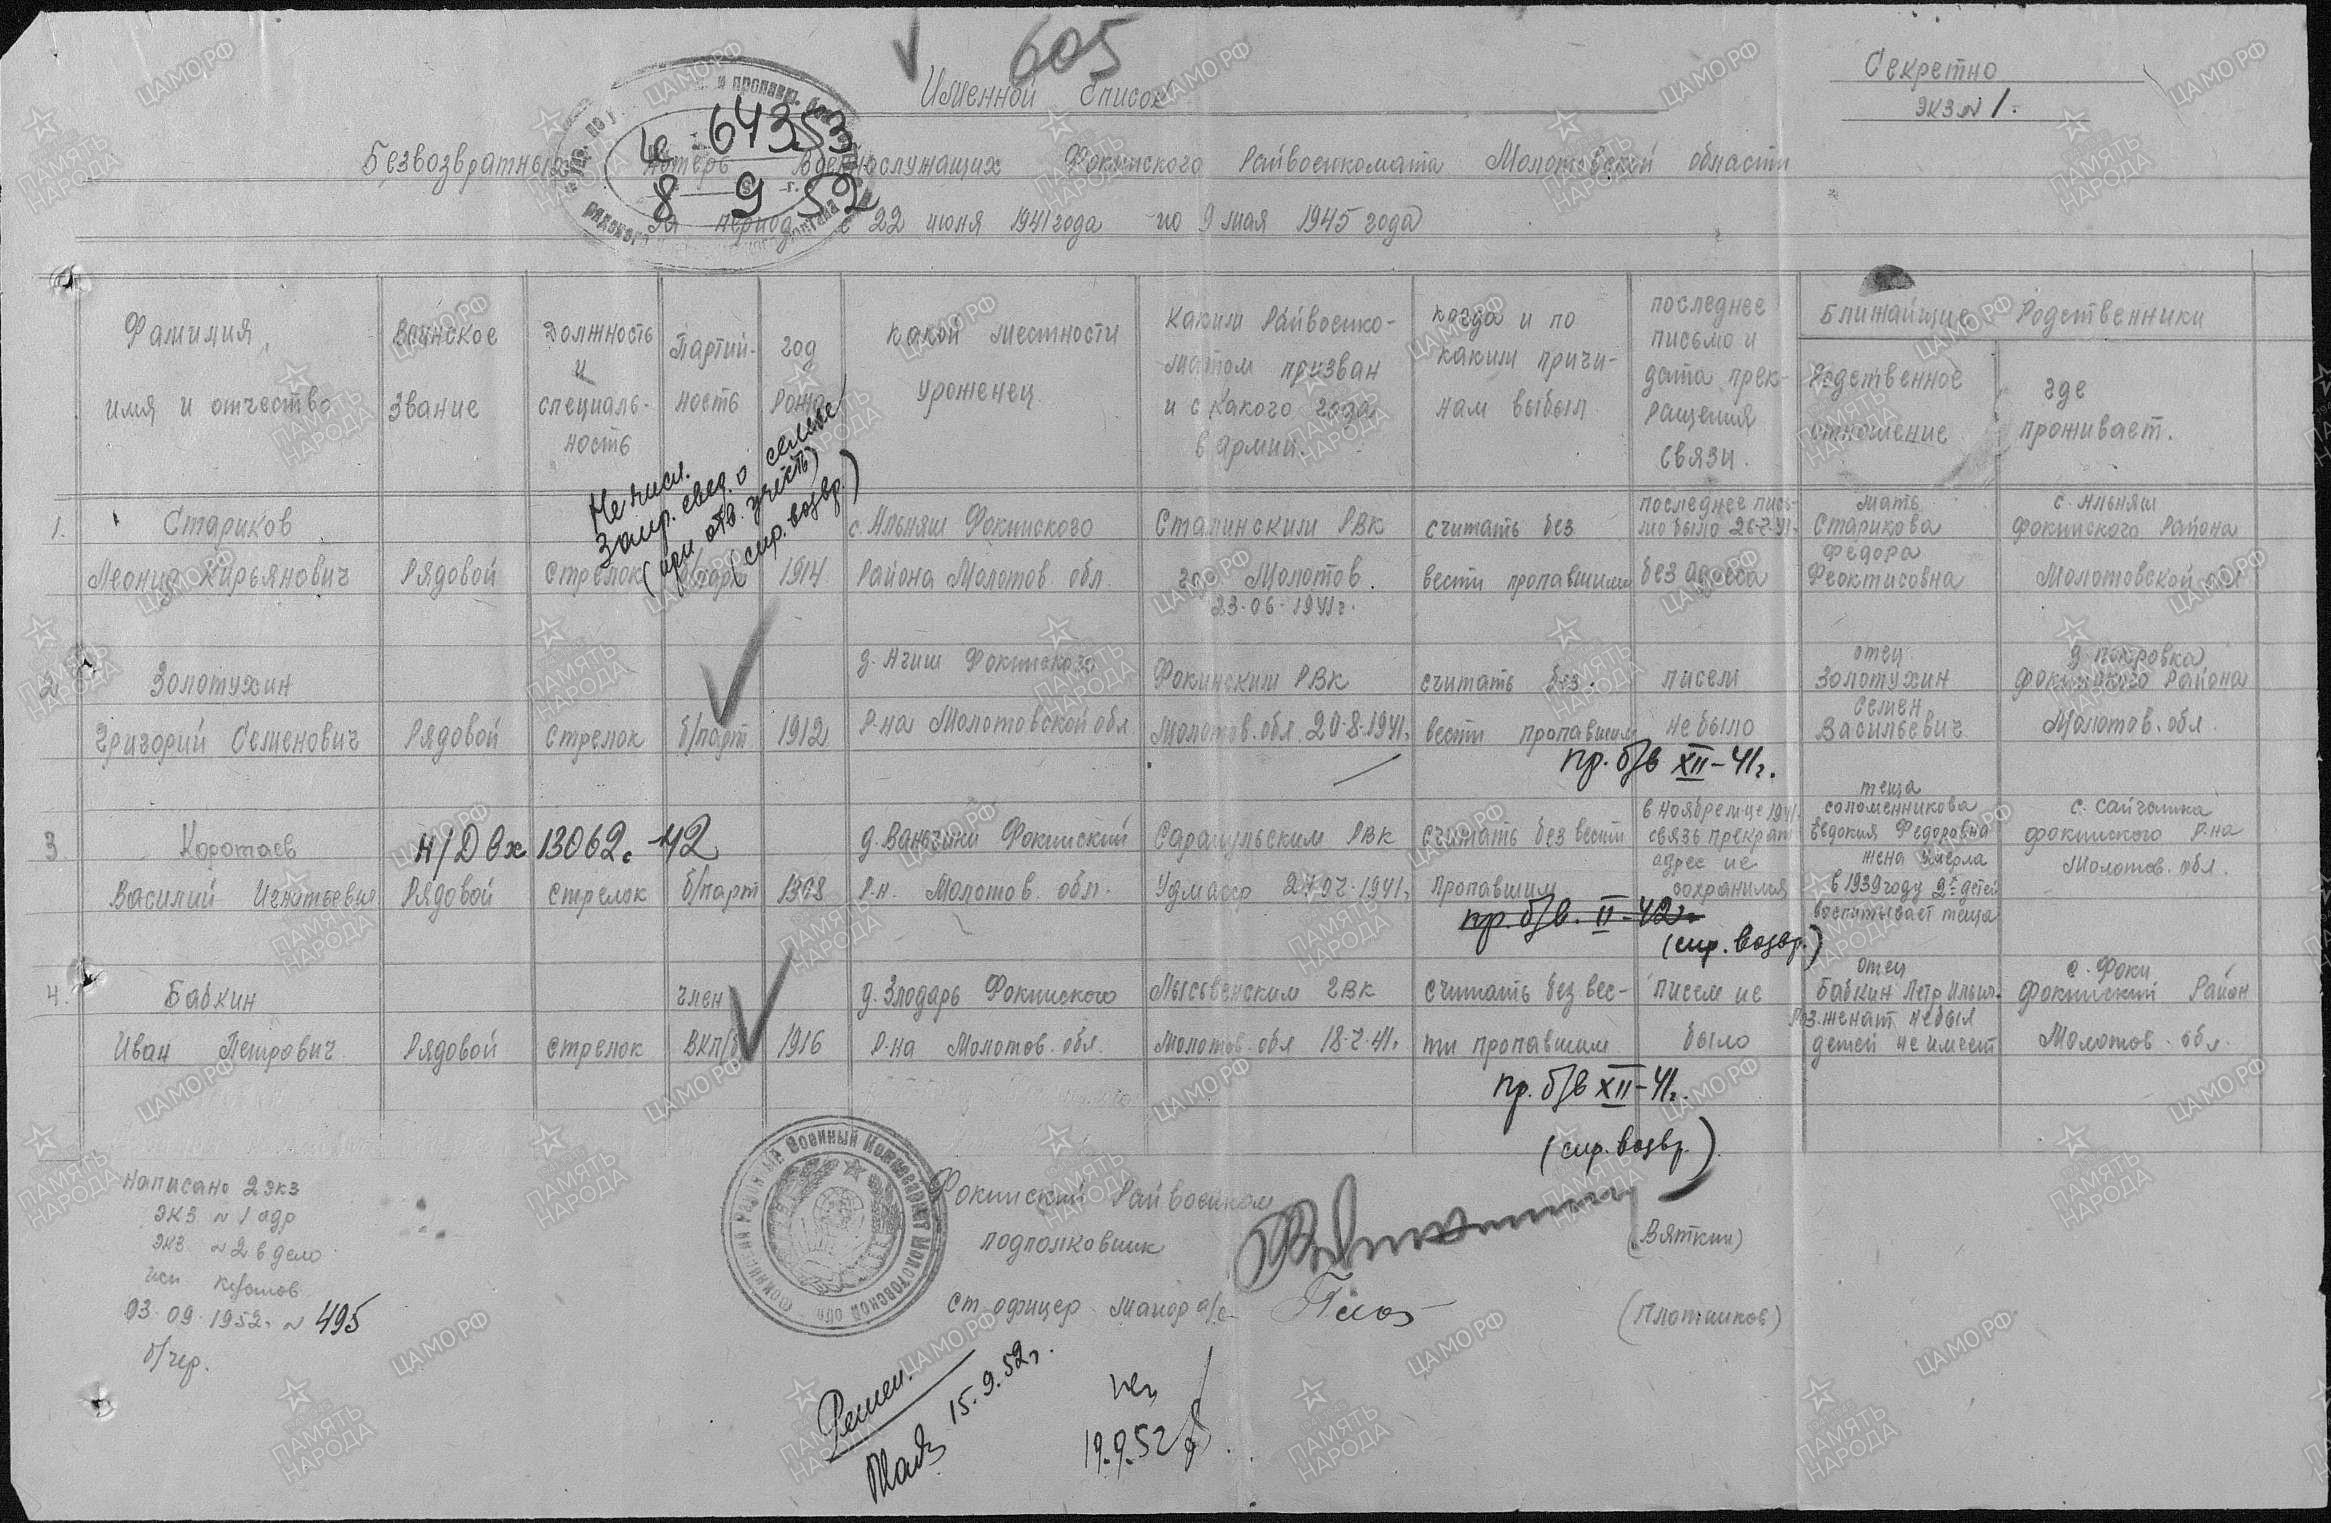 605
Секретно
Экз № 1.
Именной список
Безвозвратных потерь военнослужащих Фокинского Райвоенкомата Молотовской области
за период с 22 июня 1941 года по 9 мая 1945 года
64353
8 9 52
Фамилия, имя и отчество
Воинское звание
Должность и специальность
Партийность
год рожд.
какой местности уроженец
Каким Райвоенкоматом призван и с какого года в армии.
когда и по каким причинам выбыл
последнее письмо и дата прекращения связи.
Ближайшие Родственники
Родственное отношение
где проживает.
Не числ.
запр. свед. о семье
(при отв. учесть)
(спр. возвр.)
1. Стариков
Леонид Кирьянович
Рядовой
Стрелок
б/парт
1914
с. Альняш Фокинского
Района Молотов. обл
Сталинским РВК
гор Молотов.
23-06-1941г.
считать без
вести пропавшим
последнее пись-
мо было 26-7-41.
без адреса
мать
Старикова
Федора
Феоктисовна
с. Альняш
Фокинского Района
Молотовской обл
2 Золотухин
Григорий Семенович
Рядовой
Стрелок
б/парт
1912
д. Агиш Фокинского
Р-на Молотовской обл
Фокинским РВК
Молотов. обл. 20-8-1941.
считать без
вести пропавшим
писем
не было
пр. б/в XII-41г.
отец
Золотухин
Семен
Васильевич
д. Покровка
Фокинского Района
Молотов. обл.
3. Коротаев
Василий Игнатьевич
н/Д Вх 13062с-42
Рядовой
стрелок
б/парт
1908
д. Ваньчики Фокинский
Р-н. Молотов. обл.
Сарапульским РВК
Удмасср
считать без вести
пропавшим
в ноябре м-це 1941.
связь прекрат
адрес не
сохранился
пр. б/в. II-42г.
(спр. возвр.)
теща
Соломенникова
Евдокия Федоровна
жена умерла
в 1939 году 2е детей
воспитывает теща
с. Сайгатка
Фокинского Р-на
Молотов. обл.
4. Бабкин
Иван Петрович
Рядовой
стрелок
член
ВКП/б
1916
д. Злодарь Фокинского
Р-на Молотов. обл.
Лысьвенским ГВК
Молотов. обл 18-7-41.
считать без вес-
ти пропавшим
писем не
было
пр. б/в XII-41г.
(спр. возвр.)
отец
Бабкин Петр Ильич.
женат не был
детей не имеет
с. Фоки
Фокинский Район
Молотов. обл.
Написано 2 экз
экз № 1 адр
экз № 2 в дело
03.09.1952. № 495
б/чер.
Фокинский Райвоенком
подполковник
(Вяткин)
ст. офицер майор а/с
(Плотников)
Военный Комиссариат Молотовской обл
15.9.52г.
19.9.52
ПАМЯТЬ НАРОДА
ЦАМО.РФ